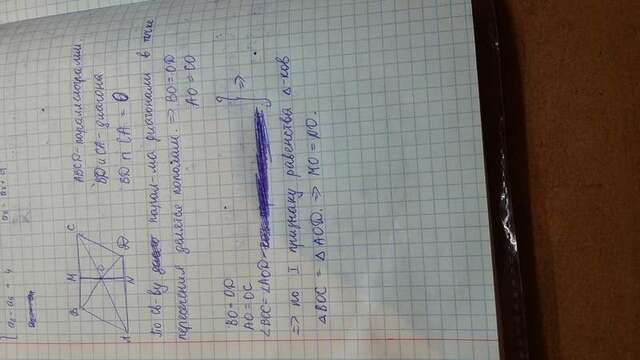 B M C
A N D
O
ABCD - параллелограмм.
BD и CA - диагона
BD ∩ CA = O
По св-ву парал-ма диагонали в точке
пересечения делятся пополам. => BO = OD
AO = CO
BO = OD
AO = OC
∠BOC = ∠AOD
} =>
=> по I признаку равенства Δ-ков
ΔBOC = ΔAOD. => MO = NO.